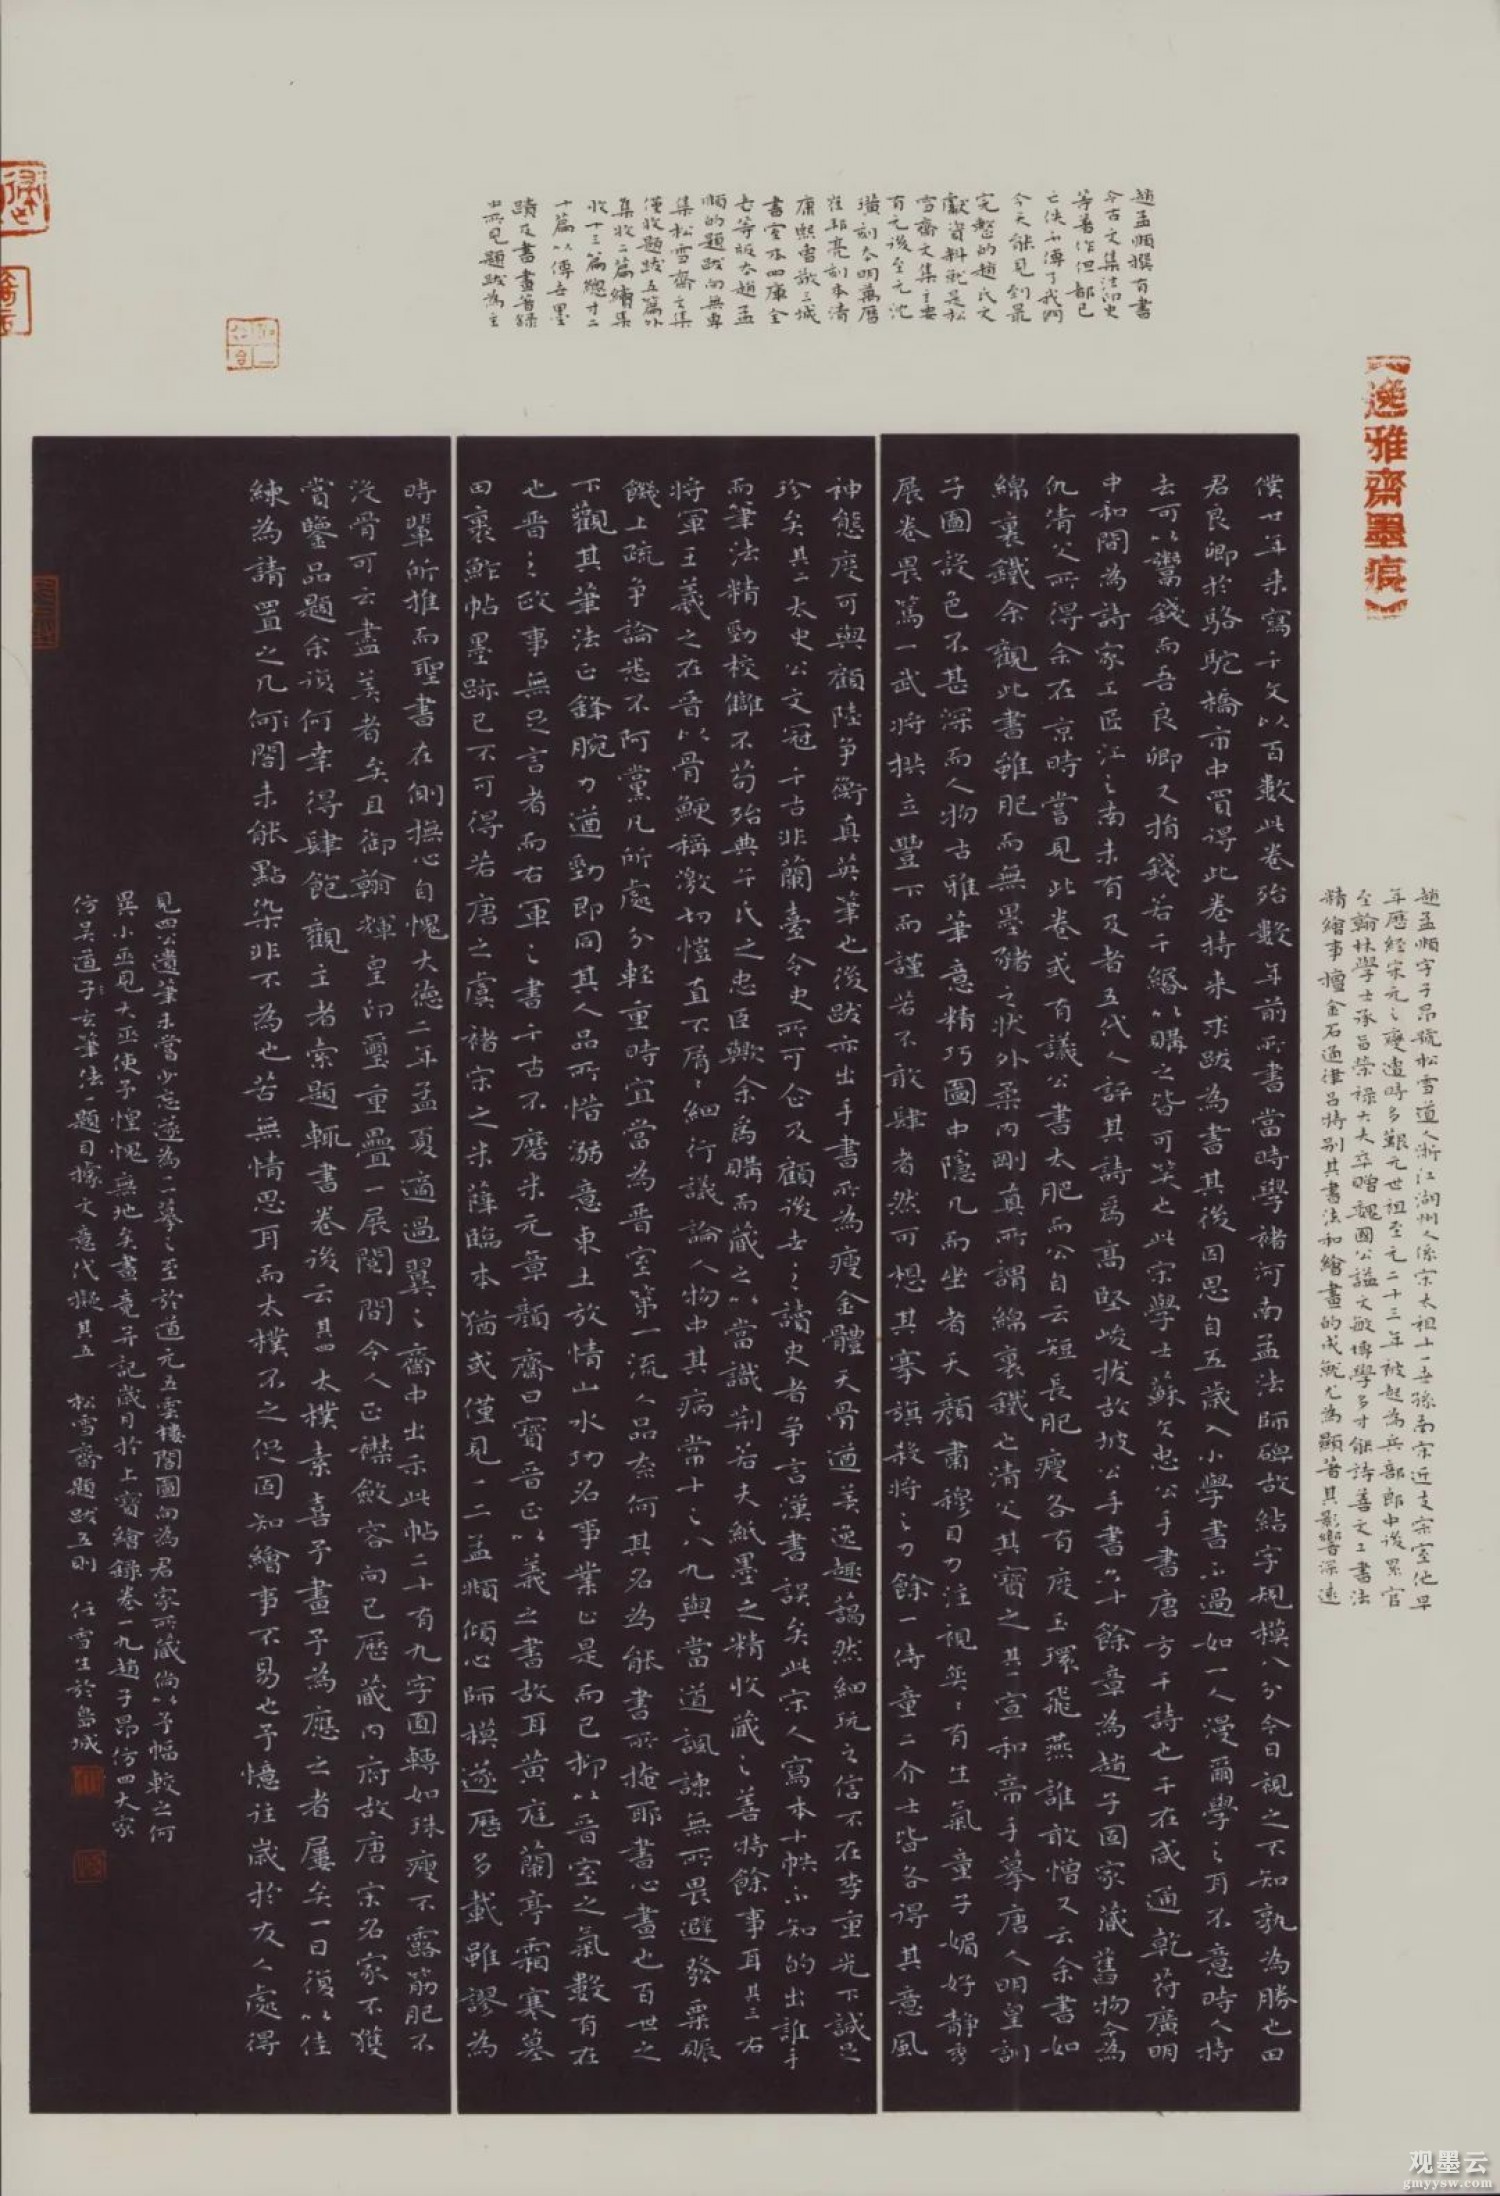 逸雅齋墨痕
趙孟頫撰有書
今古文集法印史
等著作但都已
亡佚不傳了我們
今天能見到最
完整的趙氏文
獻資料就是松
雪齋文集主要
有元後至元沈
璜刻本明萬曆
崔邦亮刻本清
康熙曹培三城
書室本四庫全
書等版本趙孟
頫的題跋向無專
集松雪齋文集
僅收題跋五篇外
集收二篇續集
收十三篇總才二
十篇以傳世墨
蹟及書畫著錄
出所見題跋為主
趙孟頫字子昂號松雪道人浙江湖州人係宋太祖十一世孫南宋近支宗室他早
年歷經宋元之變遭時多艱元世祖至元二十三年被起為兵部郎中後累官
至翰林學士承旨榮祿大夫卒贈魏國公謚文敏博學多才能詩善文工書法
精繪事擅金石通律呂特別其書法和繪畫的成就尤為顯著其影響深遠
僕廿年來寫千文以百數此卷殆數年前所書當時學褚河南孟法師碑故結字規模八分今日視之不知孰為勝也田
君良卿於駱駝橋市中買得此卷持來求跋為書其後因思自五歲入小學書不過如一人漫爾學之耳不意時人持
去可以鬻錢而吾良卿又捐錢若干緡以購之皆可笑也此宋學士蘇文忠公手書唐方干詩也干在咸通乾符廣明
中和間為詩家工匠江之南未有及者五代人評其詩為高堅峻拔故坡公手書六十餘章為趙子固家藏舊物今為
仇清父所得余在京時嘗見此卷或有議公書太肥而公自云短長肥瘦各有度玉環飛燕誰敢憎又云余書如
綿裹鐵余觀此書雖肥而無墨豬之狀外柔內剛真所謂綿裹鐵也清父其寶之其一宣和帝手摹唐人明皇訓
子圖設色不甚深而人物古雅筆意精巧圖中隱几而坐者天顏肅穆目力注視奕奕有生氣童子媚好靜秀
展卷畏篤一武將拱立豐下而謹若不敢肆者然可想其搴旗殺將之力餘一侍童二介士皆各得其意風
神態度可與顧陸爭衡真英筆也後跋亦出手書所為瘦金體天骨遒美逸趣藹然細玩之信不在李重光下誠足
珍矣其二太史公文冠千古非蘭臺令史所可企及顧後世之讀史者爭言漢書誤矣此宋人寫本十帙不知的出誰手
而筆法精勁校讎不苟殆典午氏之忠臣歟余為購而藏之以當識荊若夫紙墨之精收藏之善特餘事耳其三右
將軍王羲之在晉以骨鯁稱激切愷直不屑屑細行議論人物中其病常十之八九與當道諷諫無所畏避發粟賑
饑上疏爭論悉不阿黨凡所處分輕重時宜當為晉室第一流人品奈何其名為能書所掩耶書心畫也百世之
下觀其筆法正鋒腕力遒勁即同其人品所惜溺意東土放情山水功名事業止是而已抑以晉室之氣數有在
也晉之歐事無足言者而右軍之書千古不磨米元章顏齋曰寶晉正以羲之書故耳黃庭蘭亭霜寒墓
田裹鮓帖墨跡已不可得若唐之虞褚宋之米薛臨本猶或僅見一二孟頫傾心師模遂歷多載雖謬為
時輩所推而聖書在側撫心自愧大德二年孟夏適過翼之齋中出示此帖二十有九字圓轉如珠瘦不露筋肥不
沒骨可云盡美者矣且御翰輝皇印璽重疊一展閱間令人正襟斂容向已歷藏內府故唐宋名家不獲
賞鑒品題余復何幸得肆飽觀主者索題輒書卷後云其四太樸素喜予畫予為應之者屢矣一日復以佳
練為請置之几何閣未能點染非不為也苦無情思耳而太樸不之促固知繪事不易也予憶往歲於友人處得
見四公遺筆未嘗少忘遂為一一摹之至於道元五雲樓閣圖向為君家所藏倘以予幅較之何
異小巫見大巫使予惶愧無地矣畫竟并記歲月於上寶繪錄卷一九趙子昂仿四大家
仿吳道子玄筆法一題目據文意代擬其五 松雪齋題跋五則 任雪生於島城
观墨云
gmyysw.com